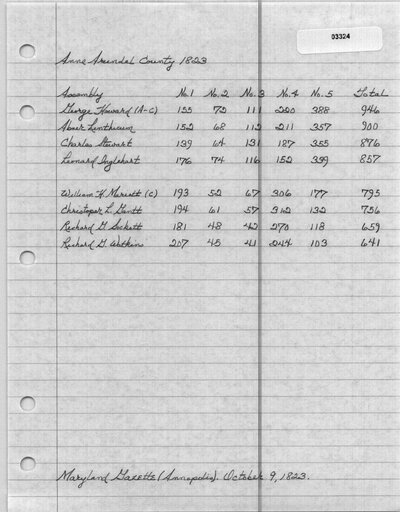 03324
Anne Arundel County 1823
Assembly No.1 No.2 No.3 No.4 No.5 Total
George Howard (A-C) 155 72 111 220 388 946
Abner Linthicum 152 68 112 211 357 900
Charles Stewart 139 64 131 187 355 876
Leonard Iglehart 176 74 116 152 339 857
William H. Marriott (C) 193 52 67 306 177 795
Christopher L. Gantt 194 61 57 312 132 756
Richard G. Sockett 181 48 42 270 118 659
Richard G. Watkins 207 45 41 244 103 641
Maryland Gazette (Annapolis). October 9, 1823.